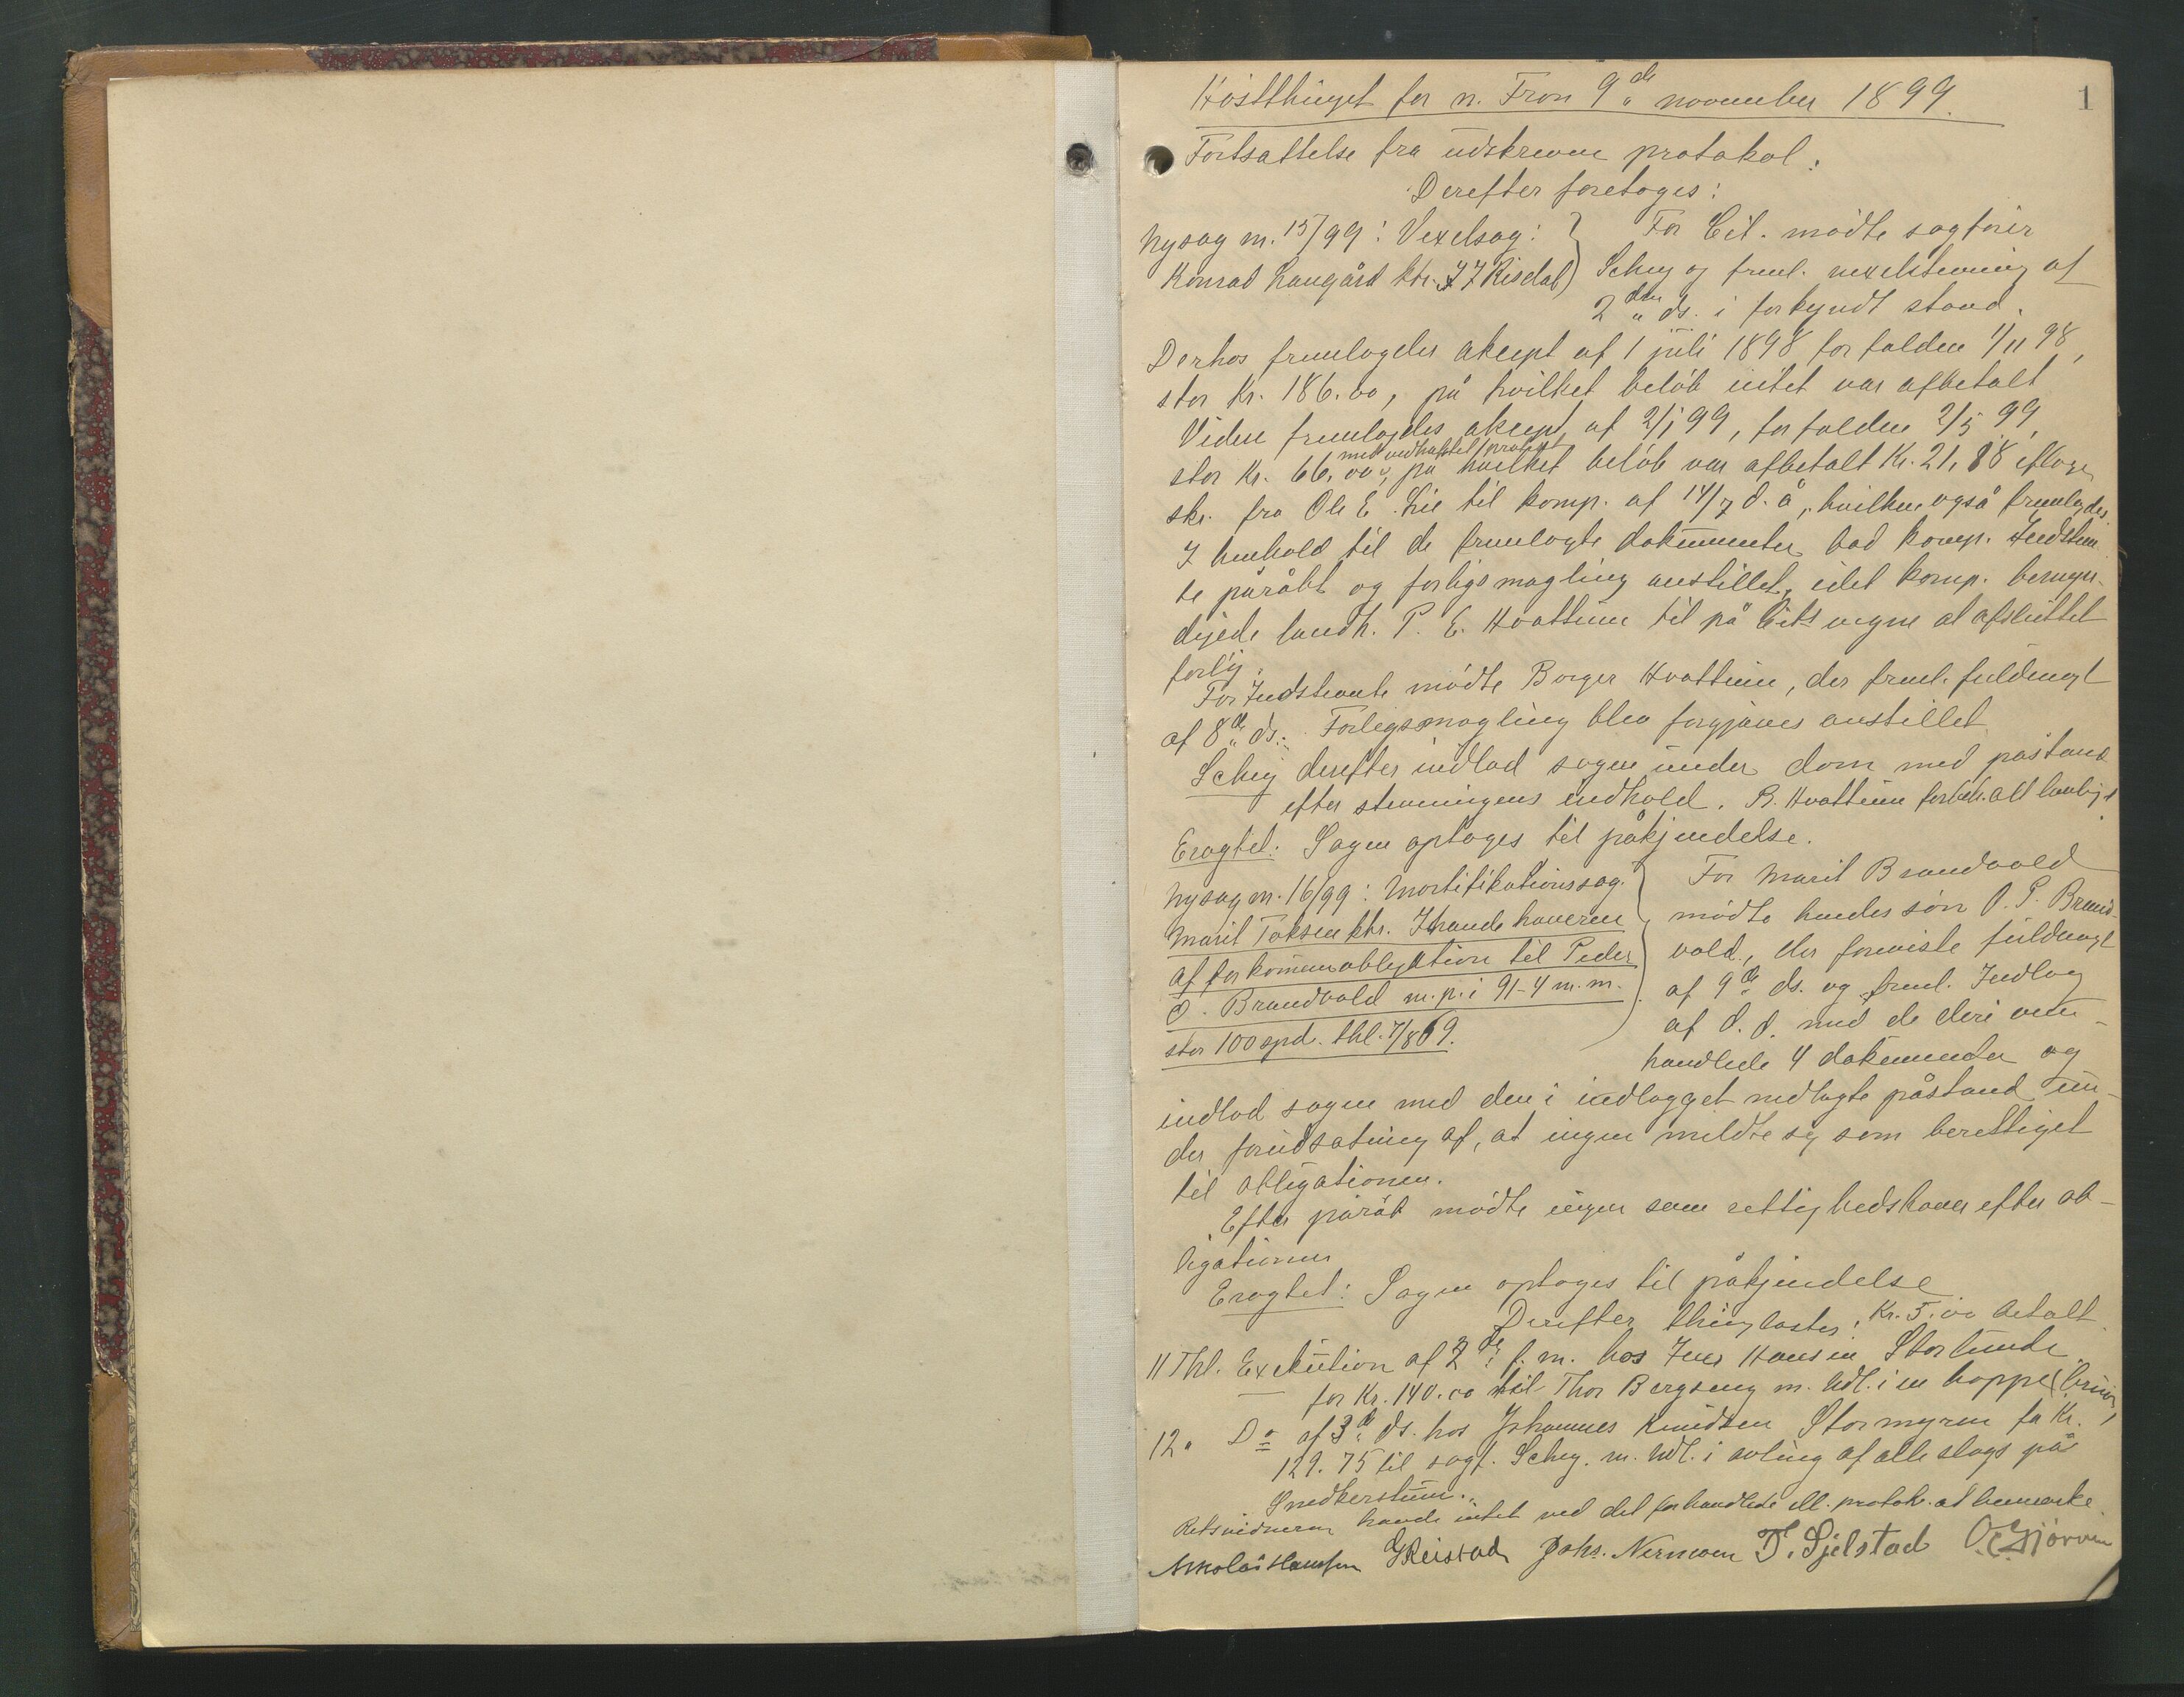 1
Høstthinget for n. Fron 9de november 1899.
Fortsættelse fra udskreven protokol:
Derefter foretoges:
Nysag nr. 15/99: Vexelsag:
Konrad Haugård ktr. J J Risdal
For Cit. mødte sagfører
Schey og freml. vexelstevning af
2den ds. i forkyndt stand.
Derhos fremlagdes akcept af 1 juli 1898 forfalden 1/11 98,
stor Kr. 186.00, på hvilket beløb intet var afbetalt
Videre fremlagdes akcept af 2/1 99, forfalden 2/5 99,
med vedhæftet protest
stor Kr. 66.00, på hvilket beløb var afbetalt Kr. 21,88 ifølge
skr. fra Ole E. Lie til komp. af 14/7 d. å, hvilken også fremlagdes.
I henhold til de fremlagte dokumenter bad komp. Indstevn
te påråbt og forligsmægling anstillet, idet komp. bemyn-
digede landh. P. E. Hvattum til på Cits vegne at afsluttet
forlig.
For Indstevnte mødte Borger Hvattum, der freml. fuldmagt
af 8de ds. Forligsmægling blev forgjæves anstillet
Schey derefter indlod sagen under dom med påstand
efter stevningens indhold. B. Hvattum forbeh. alt lovligt.
Eragtet: Sagen optoges til påkjendelse.
Nysag nr. 16/99: Mortifikationssag.
Marit Toksen ktr. Ihændehaveren
af forkommen obligation til Peder
O. Brandvold m. p. i 91-4 m. m.
stor 100 spd. thl. 7/8 69.
For Marit Brandvold
mødte hendes søn O. P. Brand-
vold, der foreviste fuldmagt
af 9de ds. og freml. Indlæg
af d. d. med de deri om-
handlede 4 dokumenter og
indlod sagen med den i indlægget nedlagte påstand un-
der forudsætning af, at ingen meldte sig som berettiget
til obligationen.
Efter påråb mødte ingen som rettighedshaver efter ob-
ligationen
Eragtet: Sagen optoges til påkjendelse
Derefter thinglæstes: Kr. 5.00 betalt
11 Thl. Exekution af 2de f. m. hos Iver Hansen Storlunde
for Kr. 140.00 til Thor Bergseng m. Udl. i en hoppe (brun)
12 " Do af 3de ds. hos Johannes Knudsen Stormyren for Kr.
129.75 til sagf. Schey. m. Udl. i avling af alle slags på
Snedkerstuen.
Retsvidnerne havde intet ved det forhandlede ell. protok. at bemærke
Nikolai Hansen Reistad Johs. Nermoen T. Sjelstad O. Gjørven